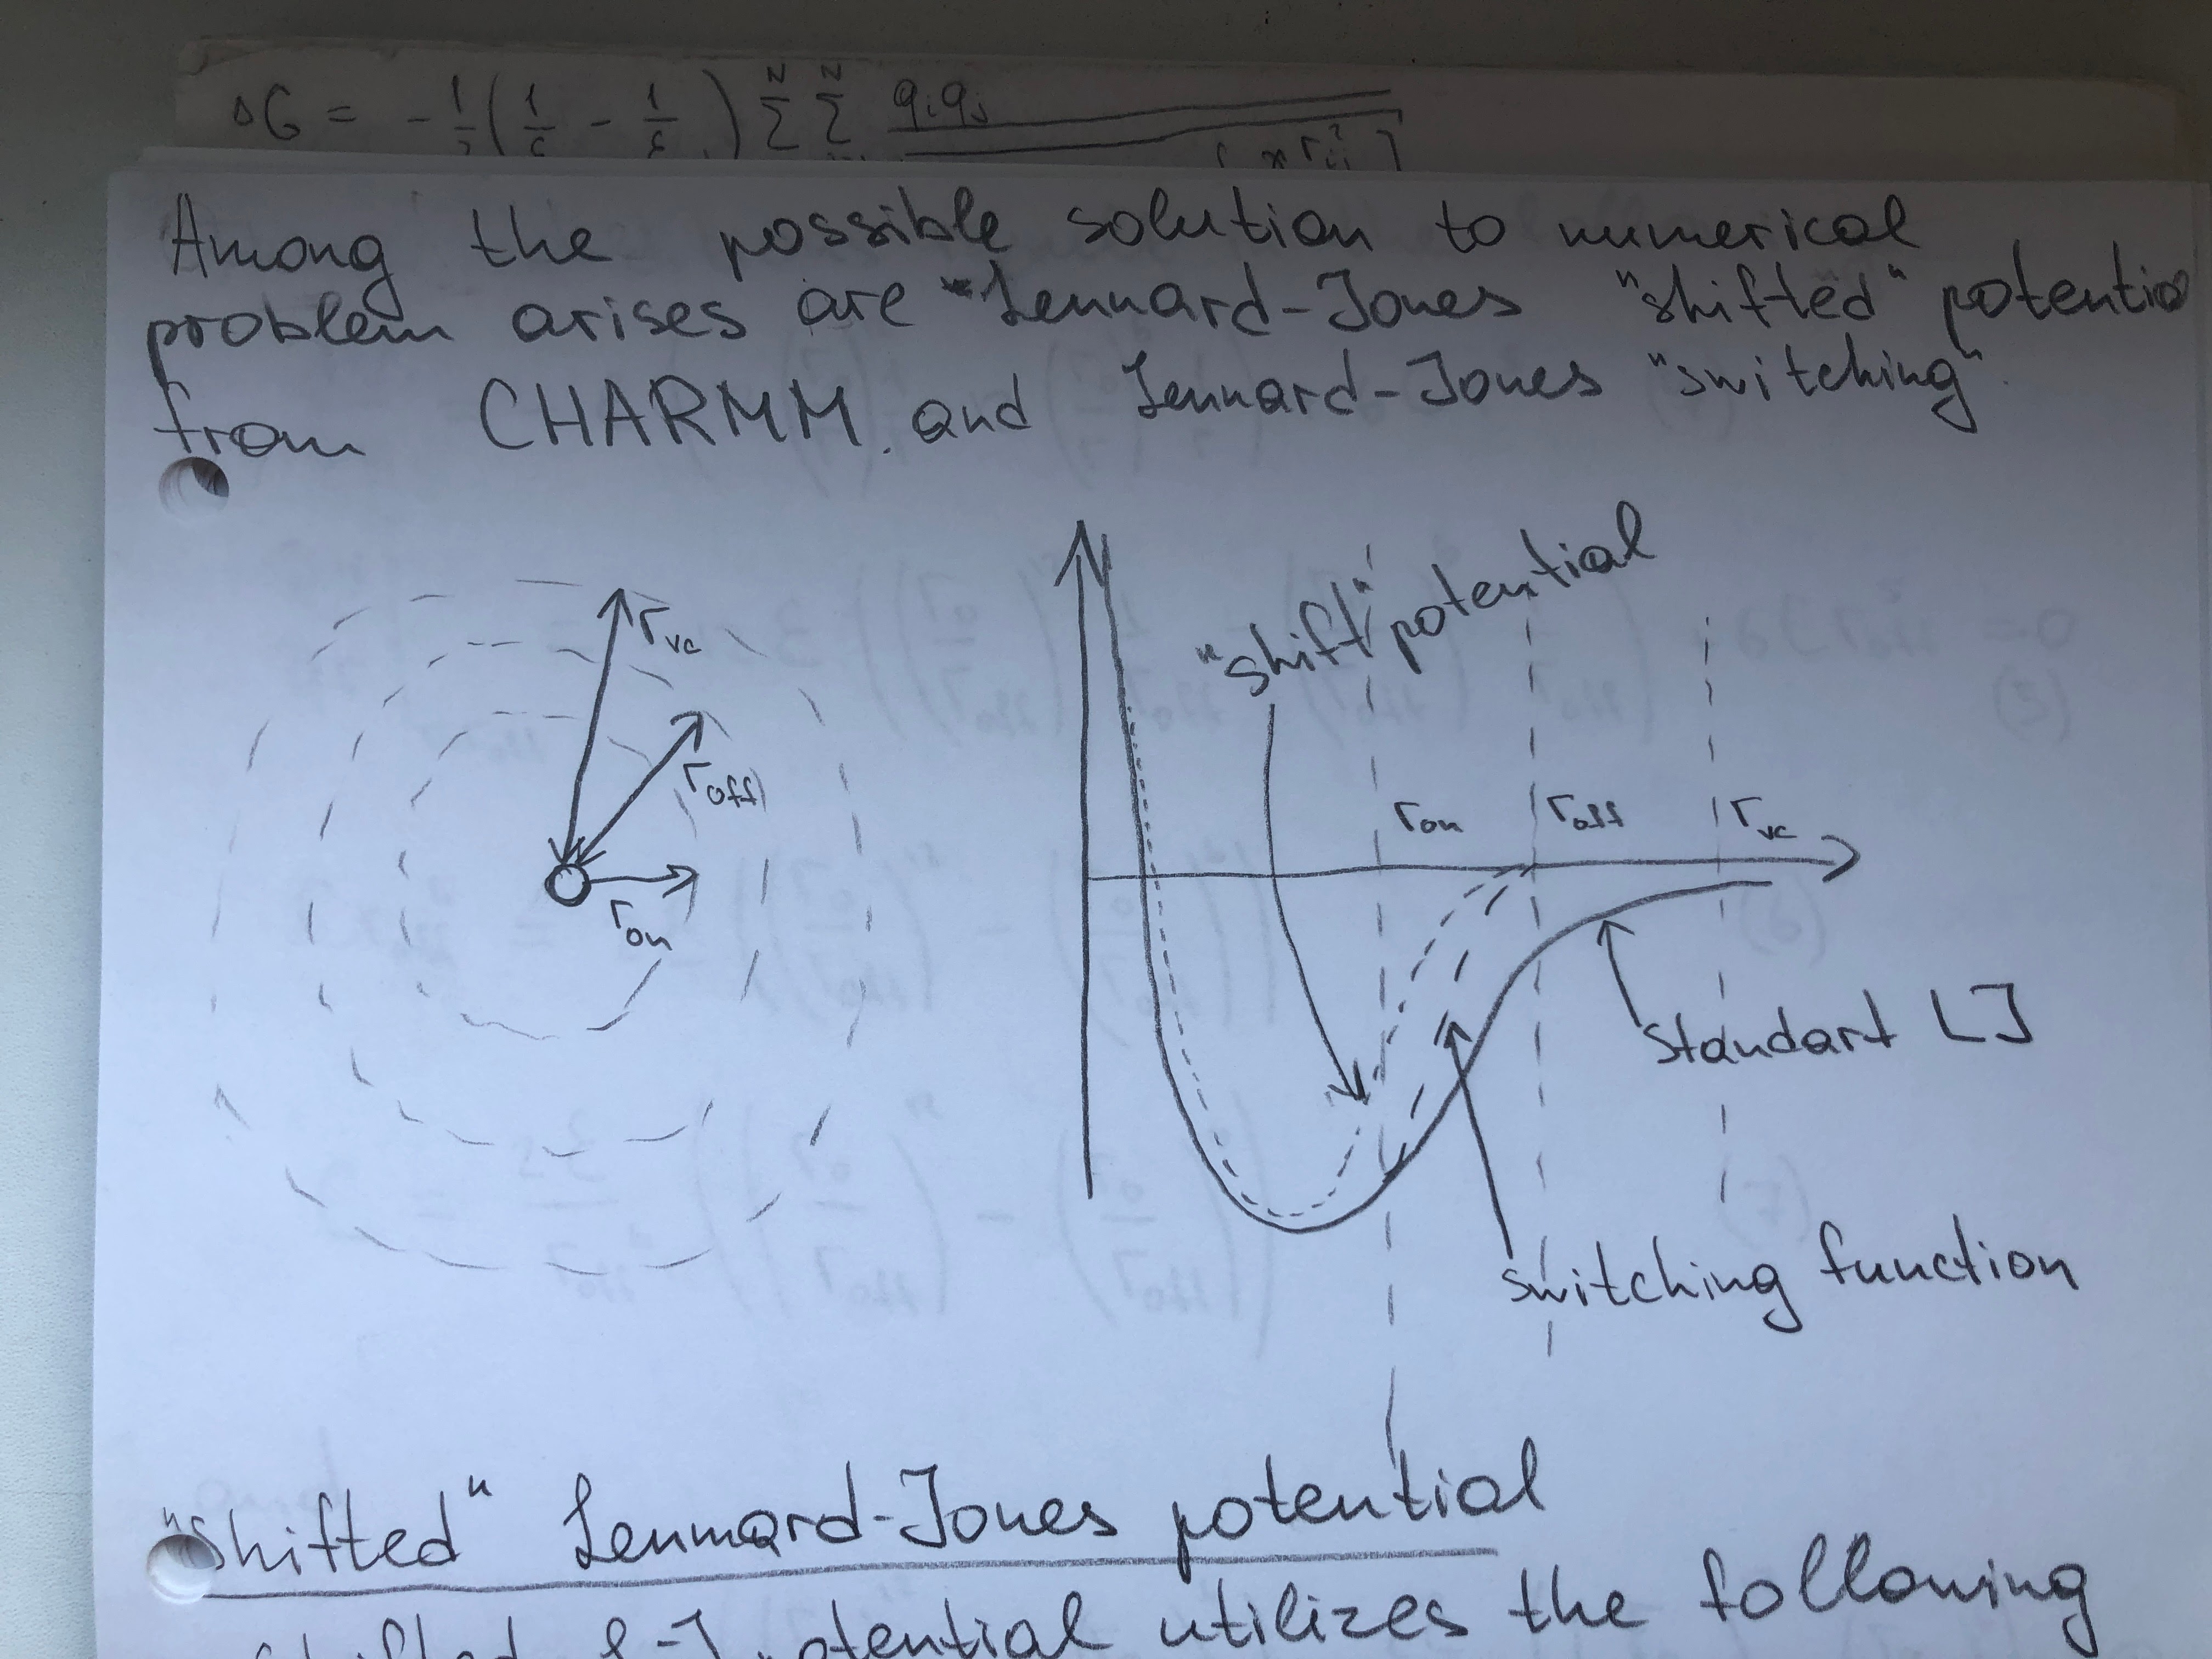 ΔG = - 1/2 ( 1/ε - 1/ε ) Σ Σ qiqj
N N
Among the possible solution to numerical
problem arises are Lennard-Jones "shifted" potentia
from CHARMM. and Lennard-Jones "switching".
"shift" potential
rvc
roff
ron
ron roff rvc
standart LJ
switching function
"shifted" Lennmard-Jones potential
shifted L-J potential utilizes the following